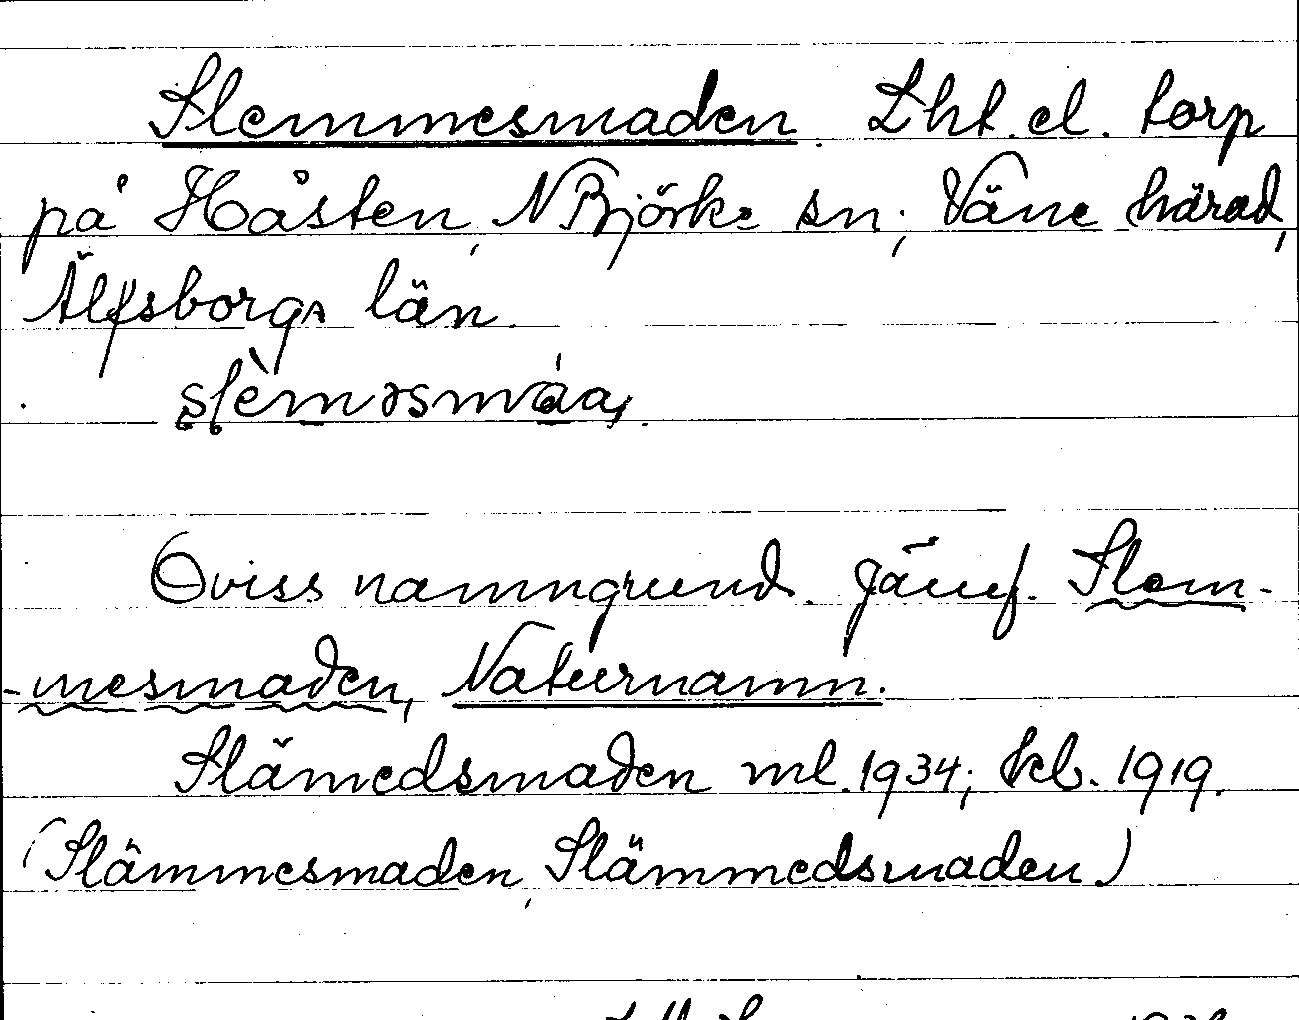 Slemmesmaden. Lht. el. torp
på Håsten, N Björke sn; Väne härad,
Älfsborgs län.
Oviss namngrund. Jämf. Slem-
-mesmaden, Naturnamn.
Slämedsmaden ml. 1934; kb. 1919.
(Slämmesmaden, Slämmedsmaden)